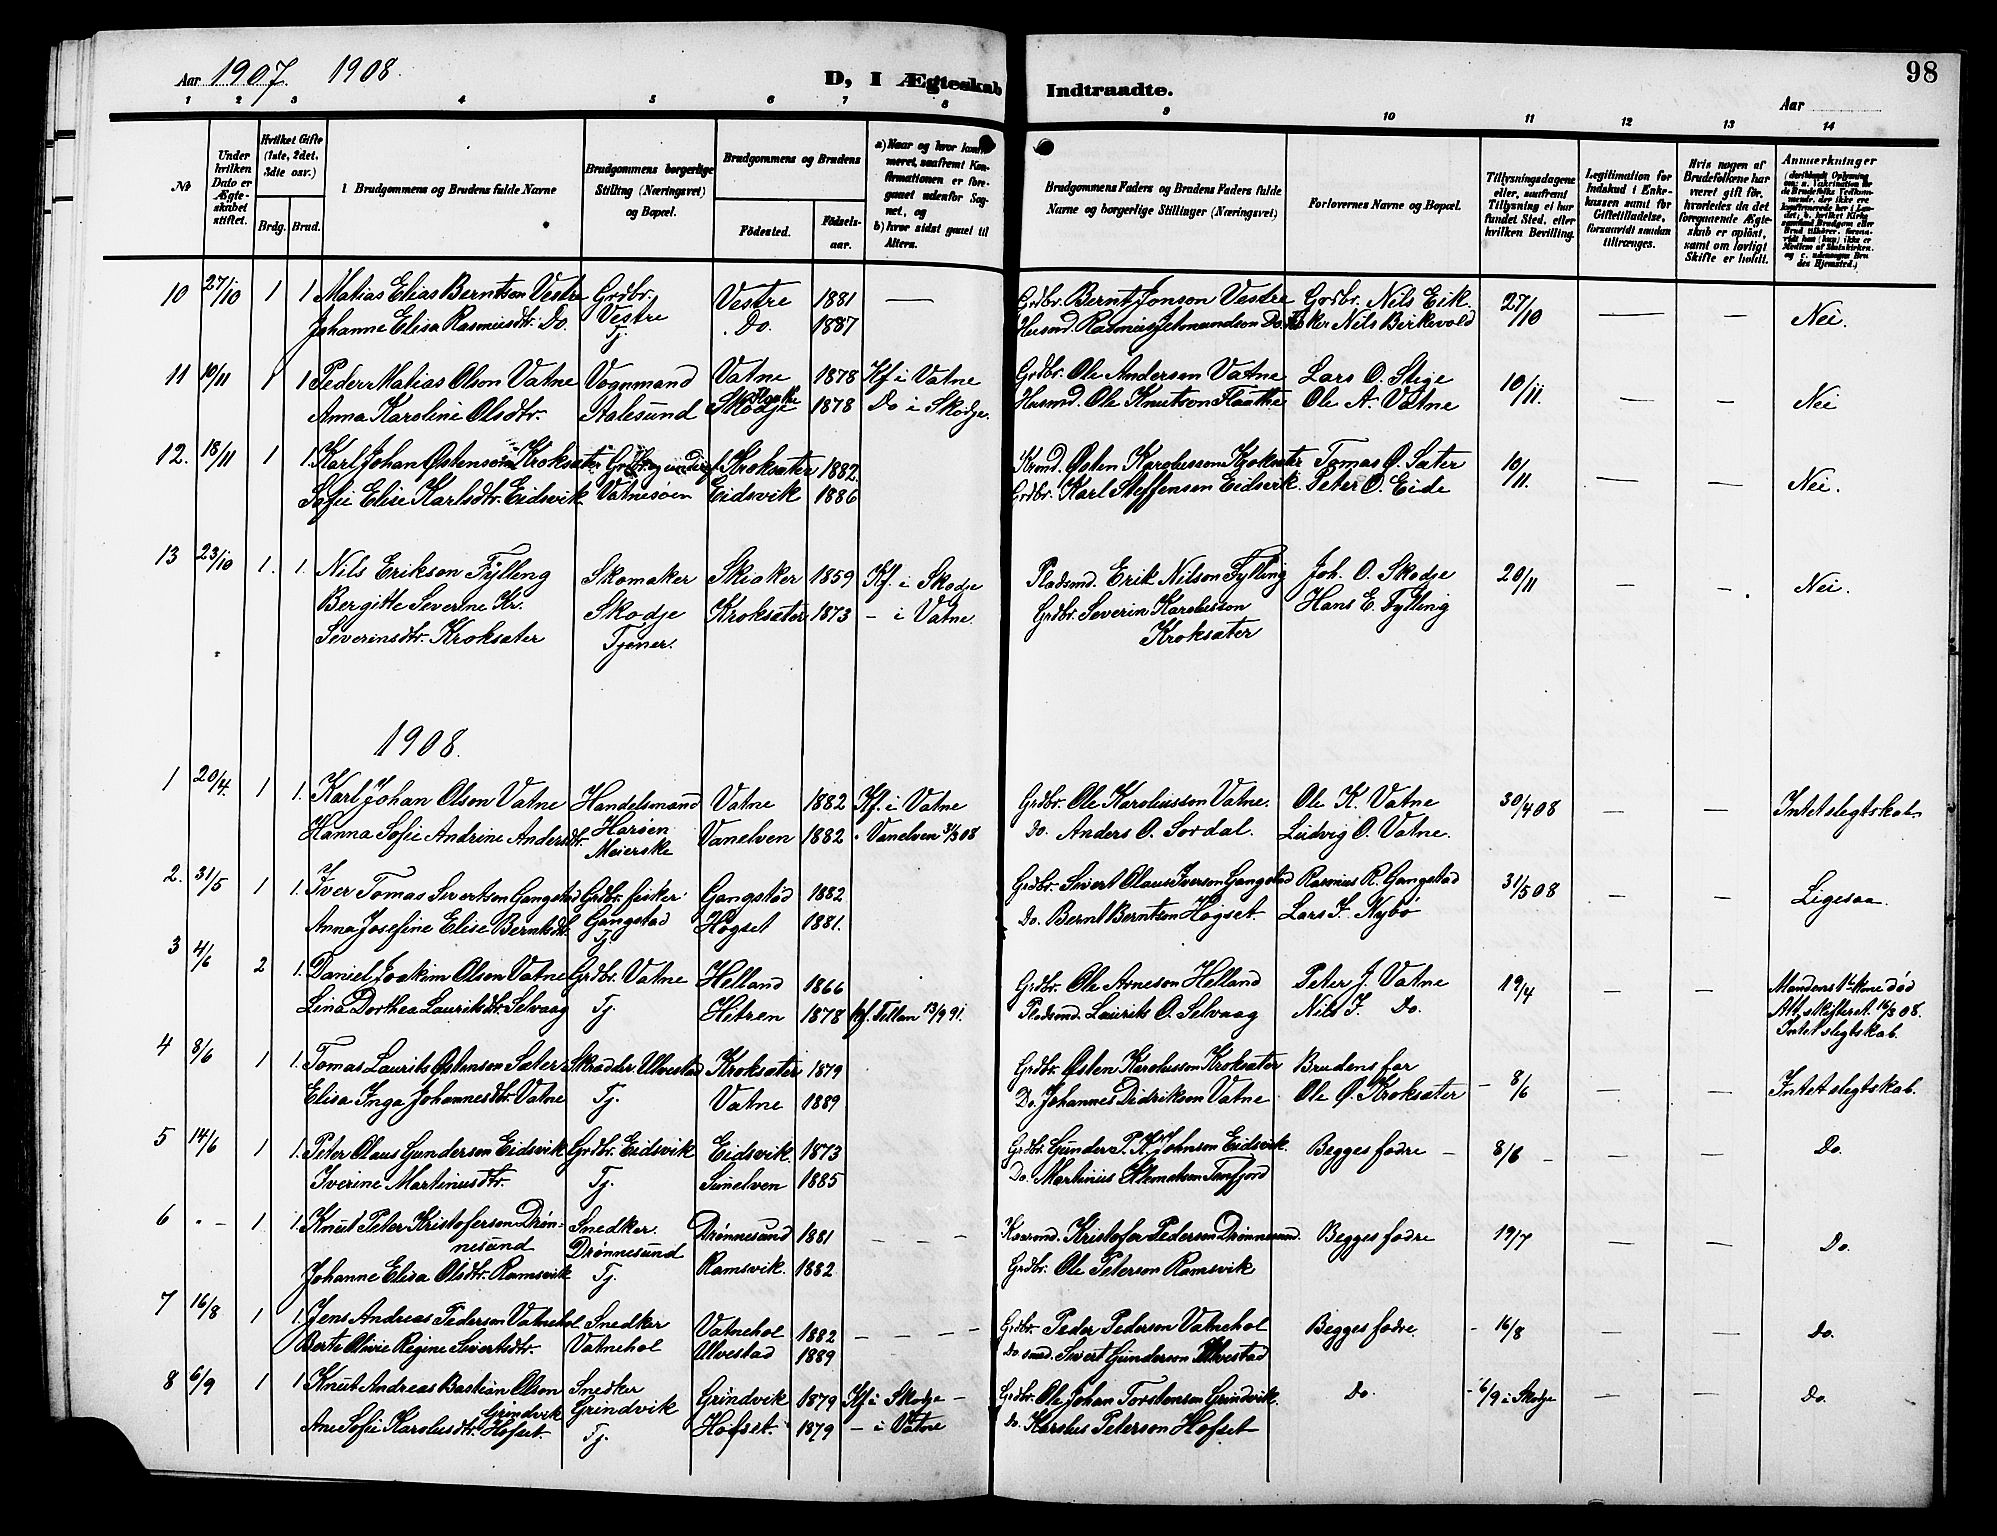 Aar 1907. 1908.
D, I Ægteskab Indtraadte.
Aar
98
1 2 3 4 5 6 7 8 9 10 11 12 13 14
№
Under hvilken Dato er Ægteskabet stiftet.
Hvilket Gifte (1ste, 2det, 3die osv.)
Brdg. Brud.
Brudgommens og Brudens fulde Navne
Brudgommens borgerlige Stilling (Næringsvei) og Bopæl.
Brudgommens og Brudens
Fødested. Fødselsaar.
b) hvor sidst gaaet til Alters.
Brudgommens Faders og Brudens Faders fulde Navne og borgerlige Stillinger (Næringsvei)
Forlovernes Navne og Bopæl.
Tillysningsdagene eller, saafremt Tillysning ei har fundet Sted, efter hvilken Bevilling.
Legitimation for Indskud i Enkekassen samt for Giftetilladelse, forsaavidt saadan tiltrænges.
Hvis nogen af Brudefolkene har været gift før, hvorledes da det foregaaende Ægteskab er opløst, samt om lovligt Skifte er holdt.
Anmærkninger
10 27/10 1 1 Matias Elias Berntson Vestre Grdbr. Vestre 1881 — Grdbr. Bernt Jonson Vestre Grdbr. Nils Eik. 27/10 — — Nei.
Johanne Elisa Rasmusdtr. Do. Vestre Tj. Do. 1887 Nils Birkevold
11 10/11 1 1 Peder Matias Olson Vatne Vognmand Vatne 1878 Kf. i Vatne Grdbr. Ole Anderson Vatne Lars O. Stige 10/11. — — Nei
Anna Karoline Olsdtr. Aalesund Skodje 1878 Do i Skodje. Husmd. Ole Knutson Flaathe Ole A. Vatne
12. 18/11 1 1. Karl Johan Østenson Kroksæter Kroksæter 1882. Østen Karolusson Kroksæter Tomas Ø. Sæter 10/11. — — Nei.
Sofie Elise Karlsdtr. Eidsvik Vatnesøen Eidsvik 1886 Grdbr. Karl Steffensen Eidsvik. Peter O. Eide
13 23/10 1. 1. Nils Erikson Fylling Skomaker Skiaker 1859 Kf. i Skodje Pladsmd. Erik Nilson Fylling Joh. O. Skodje 20/11 — Nei.
Bergitte Severine Kr. Skodje Kroksæter 1873 – i Vatne. Grdbr. Severin Karolusson Hans E. Fylling
Severinsdtr. Kroksæter Tjener. Kroksæter
1908.
1 20/4. 1 1. Karl Johan Olson Vatne Handelsmand Vatne 1882 Kf. i Vatne Grdbr. Ole Karoliusson Vatne. Ole K. Vatne 30/4 08 — — Intet slegtskab.
Hanna Sofie Andrine Andersdtr. Harøen Meierske Vanelven 1882 Vanelven Do. Anders O. Sordal. Ludvig O. Vatne.
2. 31/5 1 1. Iver Tomas Sivertson Gangstad Grdbr. fisker Gangstad 1882 Grdbr. Sivert Olaus Iverson Gangstad Rasmus R. Gangstad 31/5 08 — — Ligesaa.
Anna Josefine Elise Berntsdtr. Gangstad Tj. Høgset 1881. Do. Bernt Berntson Høgset. Lars I. Nybø
3 4/6 2 1. Daniel Joakim Olson Vatne Grdbr. Vatne Helland 1866 Grdbr. Ole Arneson Helland Peter J. Vatne 19/4 — — Mandens 1ste kone død
Lina Dorthea Lauritsdtr. Selvaag Tj. Hitren 1878 Kf. Fillan 13/9 91. Pladsmd. Laurits O. Selvaag Nils J. Do. Att. skifteret. 16/3 08.
Intet slegtskab.
4 8/6 1 1. Tomas Laurits Østenson Sæter Skrædder. Ulvestad Kroksæter 1879 Grdbr. Østen Karolusson Kroksæter Brudens far – 8/6 — — Intet slegtskab.
Elisa Inga Johannesdtr. Vatne Tj. Vatne 1889 Do. Johannes Didrikson Vatne Ole Ø. Kroksæter
5 14/6 1 1. Peter Olaus Gunderson Eidsvik Grdbr. Eidsvik Eidsvik. 1873 Grdbr. Gunder P. K. Johnson Eidsvik. Begges fædre – 8/6 – — — Do.
Iverine Martinusdtr. Tj. Sunelven 1885 Do. Martinius
6 " – 1. 1. Knut Peter Kristoferson Drønnesund Snedker. Drønnesund 1881 – – – Kristofer Pederson Drønnesund Begges fædre 19/7 — — Do.
Johanne Elisa Olsdtr. Ramsvik Drønnesund Tj. Ramsvik. 1882 Grdbr. Ole Peterson Ramsvik
7 16/8 1 1. Jens Andreas Pederson Vatnehol Snedker Vatnehol 1882 – – – – Grdbr. Peder Pederson Vatnehol Begges fædre. – 16/8 — — Do.
Berte Olivie Regine Sivertsdtr. Vatnehol Ulvestad 1889 Sivert Gunderson Ulvestad
8 6/9 1 1 Knut Andreas Bastian Olson Grindvik Snedker Grindvik 1879 Kf. i Skodje – Grdbr. Ole Johan Torstenson Grindvik. Do. – 6/9 i Skodje — — Do.
Ane Sofie Karolusdtr. Hofset. Grindvik Tj. Hofset. 1879 – i Vatne Do. Karolus Peterson Hofset